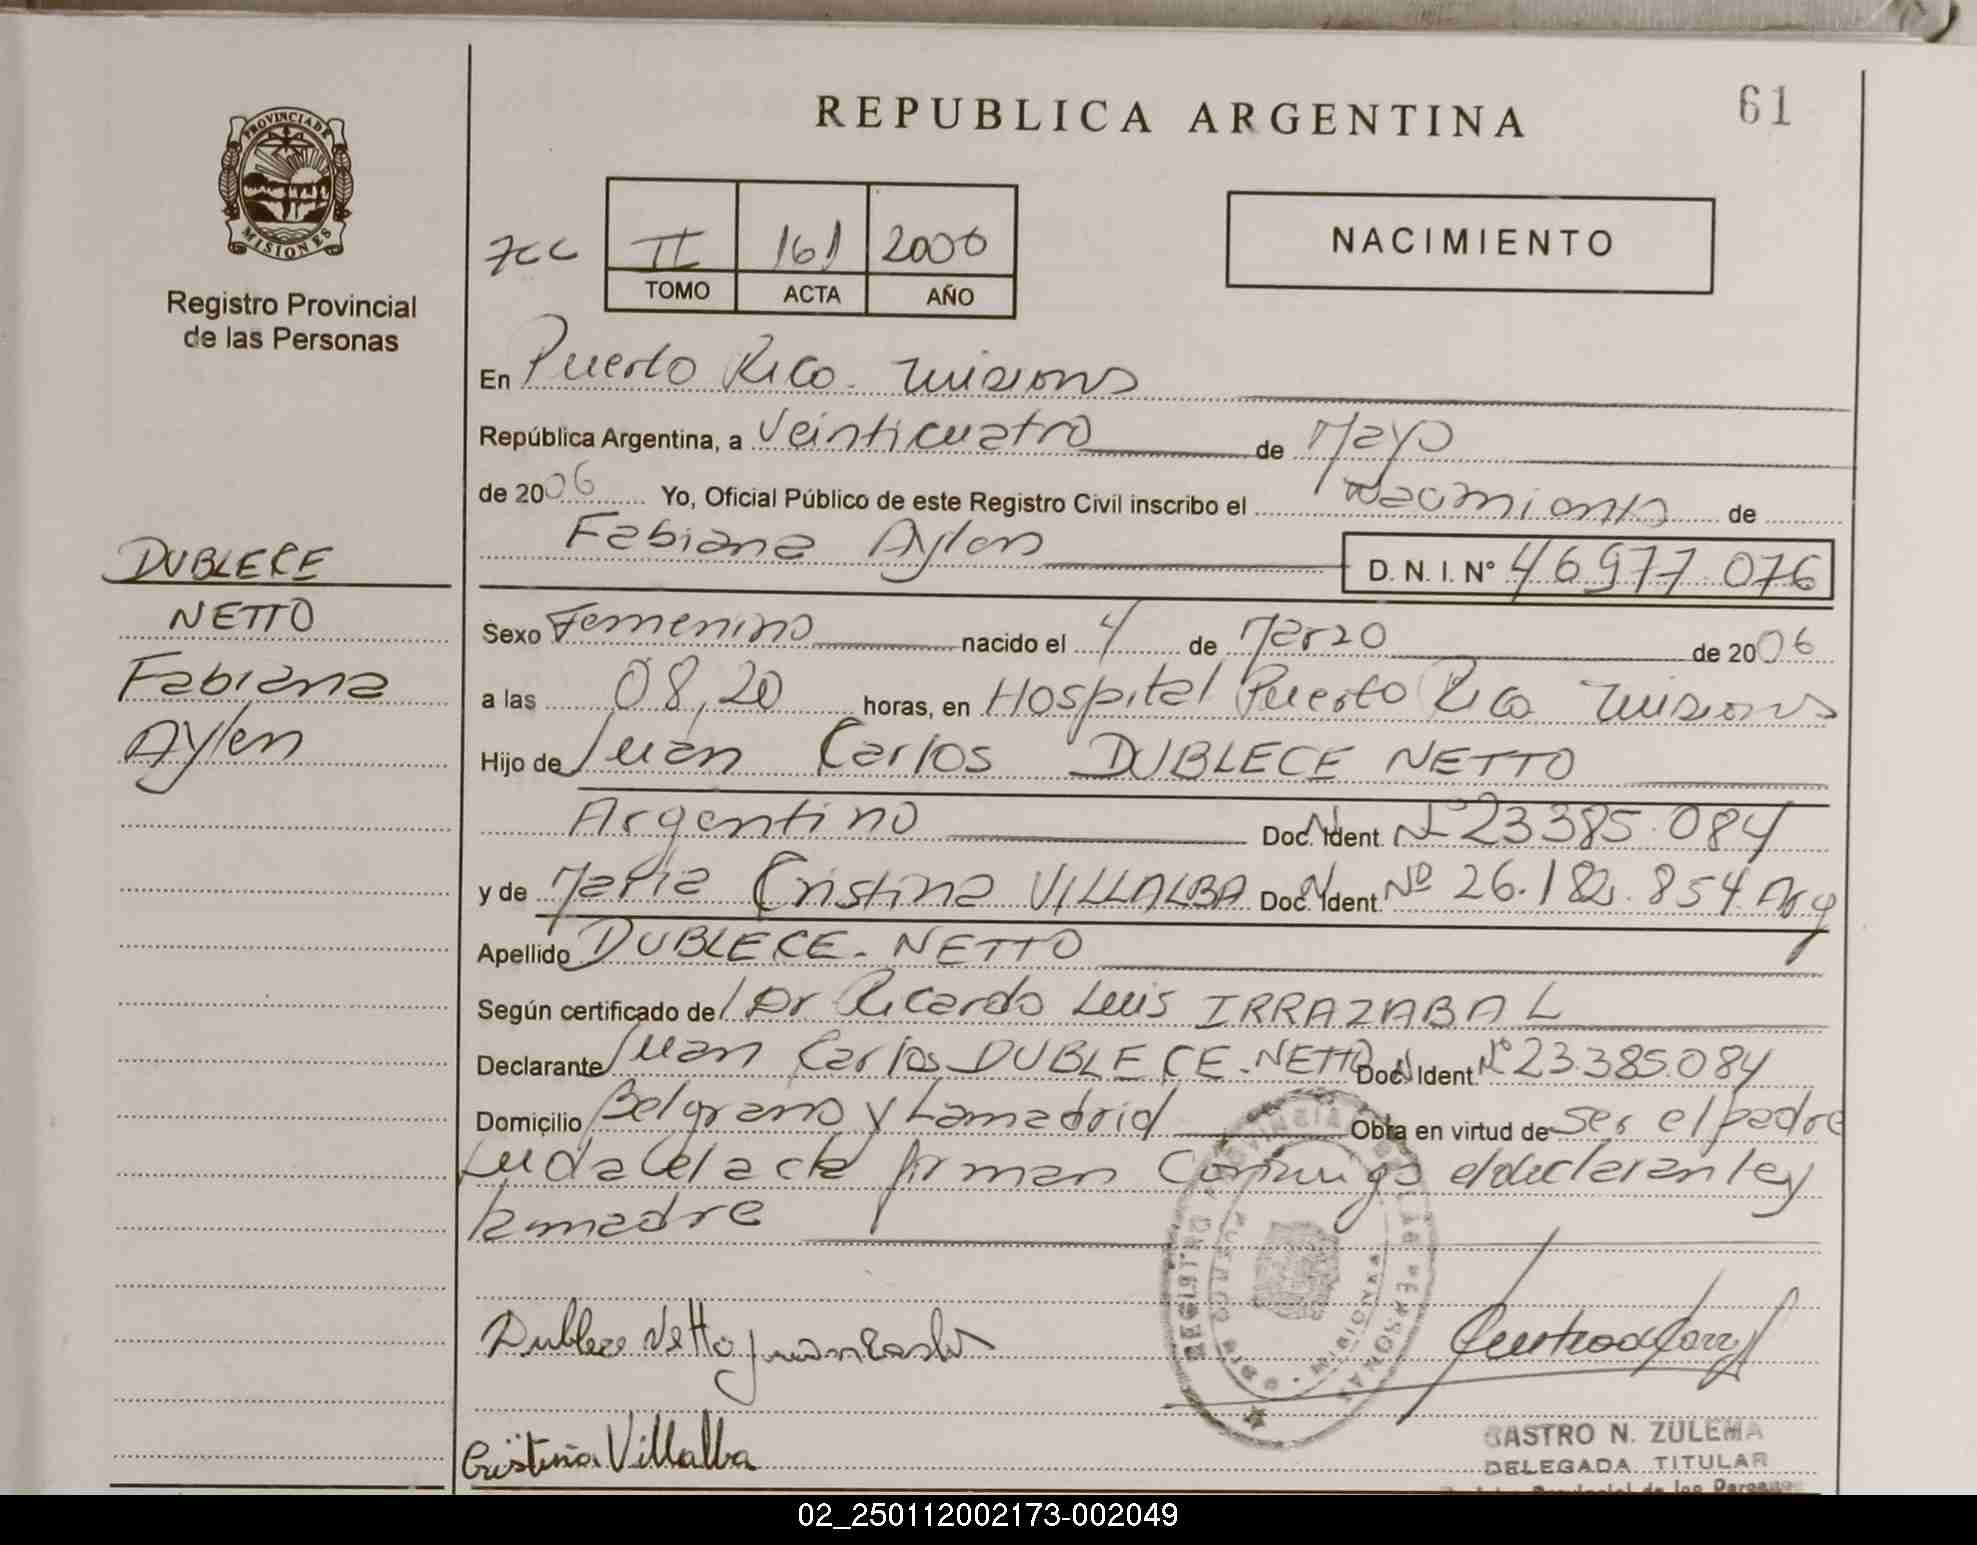 REPUBLICA ARGENTINA
61
PROVINCIA DE
MISIONES
Registro Provincial
de las Personas
II 161 2006
TOMO ACTA AÑO
NACIMIENTO
En Puerto Rico. Misiones
República Argentina, a Veinticuatro de Mayo
de 2006 Yo, Oficial Público de este Registro Civil inscribo el nacimiento de
Fabiana Aylen D. N. I. N° 46977.076
DUBLECE
NETTO
Fabiana
Aylen
Sexo Femenino nacido el 4 de Marzo de 2006
a las 08,20 horas, en Hospital Puerto Rico Misiones
Hijo de Juan Carlos DUBLECE NETTO
Argentino Doc. Ident. Nº 23385.084
y de Maria Cristina VILLALBA Doc. Ident. Nº 26.182.854 Arg
Apellido DUBLECE - NETTO
Según certificado de Dr Ricardo Luis IRRAZABAL
Declarante Juan Carlos DUBLECE - NETTO Doc. Ident. Nº 23.385.084
Domicilio Belgrano y Lamadrid Obra en virtud de ser el padre
Leida el acta firman Conmigo el declarante y
la madre
Dublece Netto Juan Carlos
Cristina Villalba
CASTRO N. ZULEMA
DELEGADA TITULAR
02_250112002173-002049